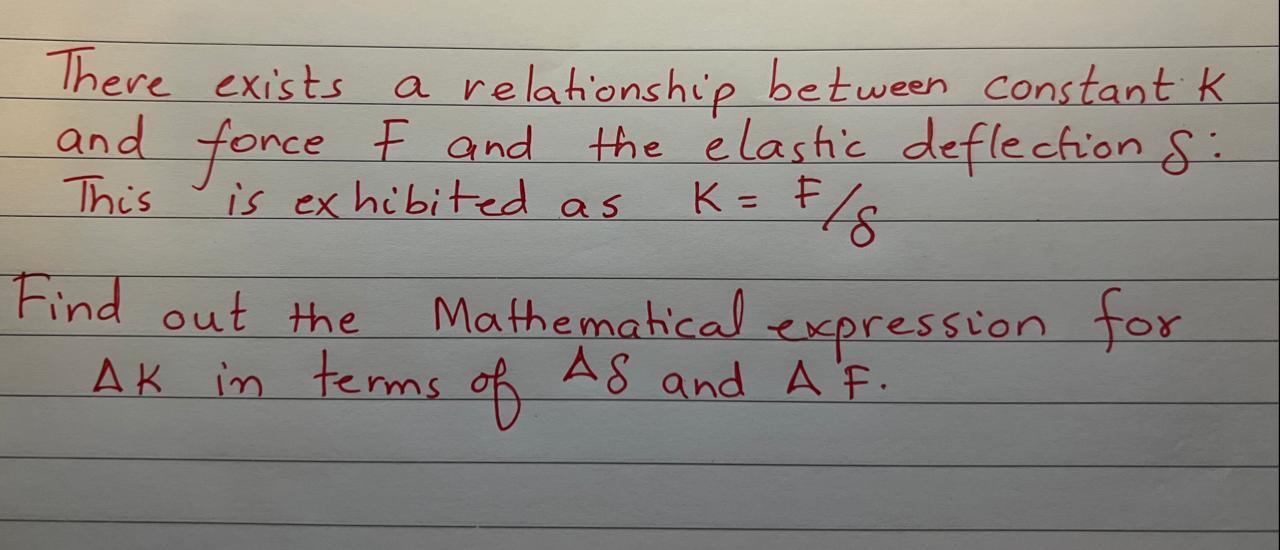 There exists a relationship between constant K
and force F and the elastic deflection δ:
This is exhibited as K = F/δ
Find out the Mathematical expression for
ΔK in terms of Δδ and ΔF.